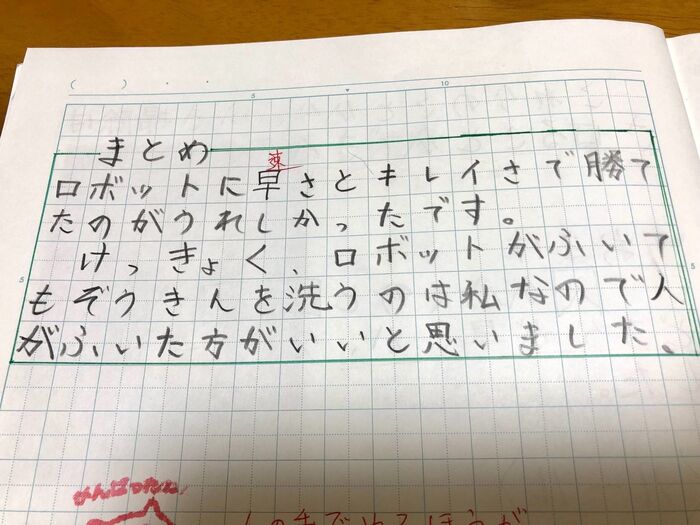 ( ) ・ ・
5
10
まとめ
速
ロボットに早さとキレイさで勝て
たのがうれしかったです。
けっきょく、ロボットがふいて
もぞうきんを洗うのは私なので人
がふいた方がいいと思いました、
5
5
がんばったね